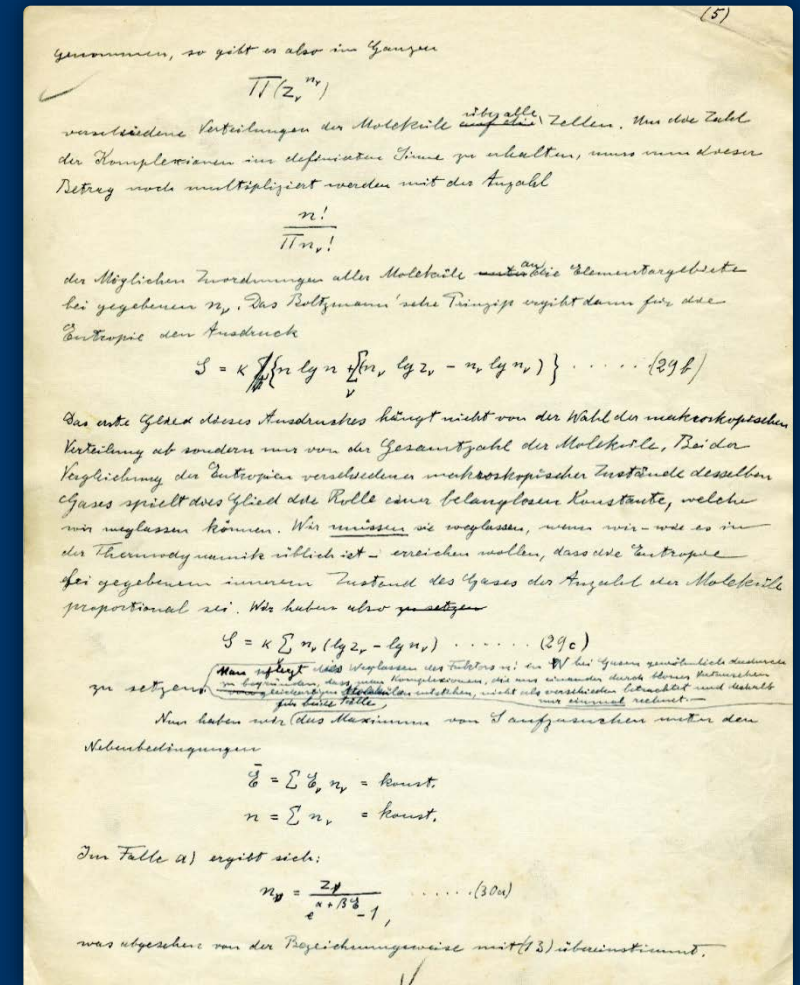 (5)
genommen, so gibt es also im Ganzen
Π(z_ν^{n_ν})
verschiedene Verteilungen der Moleküle ~~auf die~~ über alle Zellen. Um die Zahl
der Komplexionen im definierten Sinne zu erhalten, muss nun dieser
Betrag noch multipliziert werden mit der Anzahl
n! / Πn_ν!
der Möglichen Zuordnungen aller Moleküle ~~unter~~ an die Elementargebiete
bei gegebenen n_ν. Das Boltzmann'sche Prinzip ergibt dann für die
Entropie den Ausdruck
S = κ {n lg n + Σ_ν (n_ν lg z_ν - n_ν lg n_ν)} . . . . . . (29b)
Das erste Glied dieses Ausdruckes hängt nicht von der Wahl der makroskopischen
Verteilung ab sondern nur von der Gesamtzahl der Moleküle. Bei der
Vergleichung der Entropien verschiedener makroskopischer Zustände desselben
Gases spielt dies Glied die Rolle einer belanglosen Konstante, welche
wir weglassen können. Wir müssen sie weglassen, wenn wir – wie es in
der Thermodynamik üblich ist – erreichen wollen, dass die Entropie
bei gegebenem innerem Zustand des Gases der Anzahl der Moleküle
proportional sei. Wir haben also ~~zu setzen~~
S = κ Σ n_ν (lg z_ν - lg n_ν) . . . . . . (29c)
zu setzen. Man pflegt dies Weglassen des Faktors n! in W bei Gasen gewöhnlich dadurch
zu begründen, dass man Komplexionen, die aus einander durch blosses Vertauschen
gleichartiger Moleküle entstehen, nicht als verschieden betrachtet und deshalb
nur einmal rechnet. –
Nun haben wir für beide Fälle das Maximum von S aufzusuchen unter den
Nebenbedingungen
Ē = Σ E_ν n_ν = konst.
n = Σ n_ν = konst.
Im Falle a) ergibt sich:
n_ν = z_ν / (e^{α + βE} - 1), . . . . . . (30a)
was abgesehen von der Bezeichnungsweise mit (13) übereinstimmt.